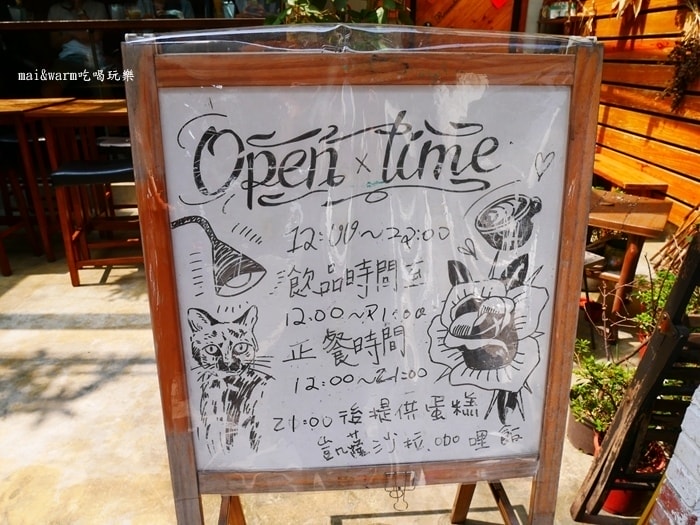 mai&warm吃喝玩樂
Open x time
12:00~22:00
飲品時間
12:00~21:00
正餐時間
12:00~21:00
21:00後提供蛋糕
凱薩沙拉.咖哩飯